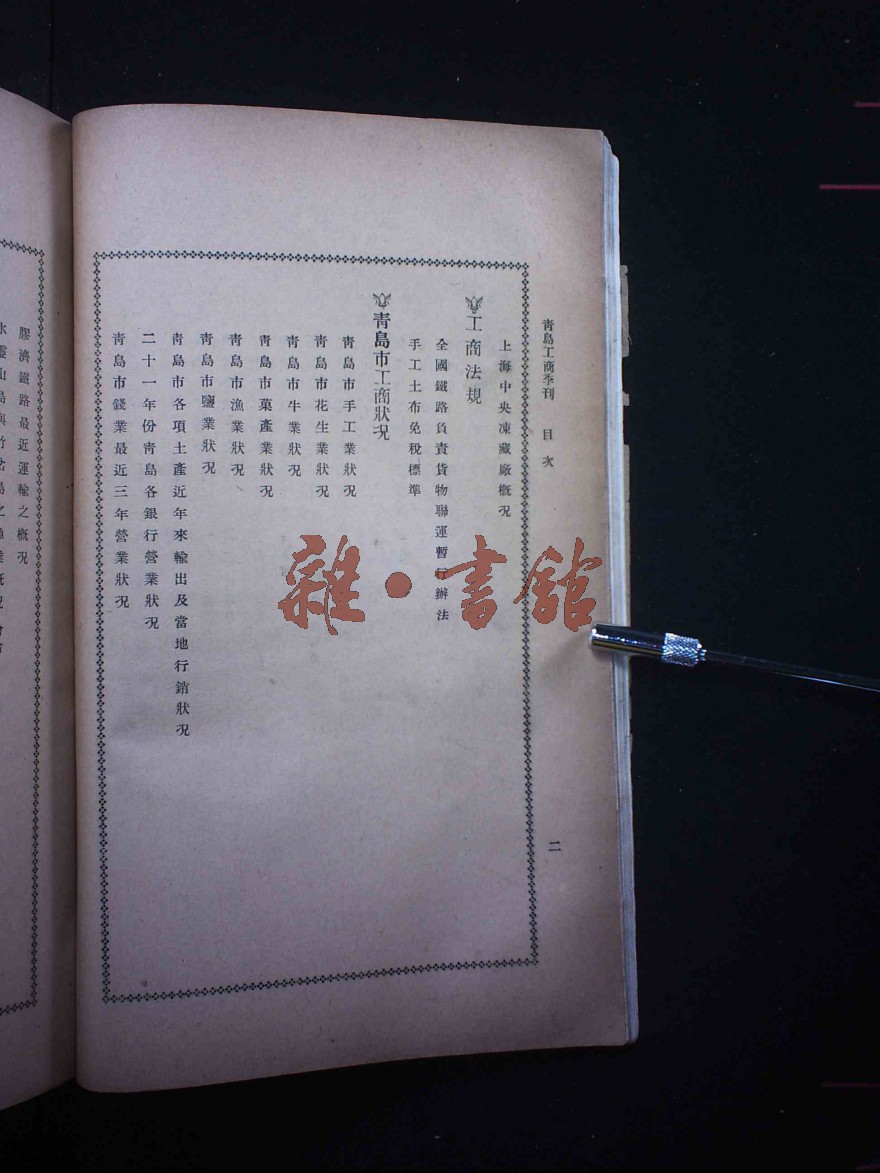 青島工商季刊　目次
二
上海中央凍藏廠概況
工商法規
全國鐵路負責貨物聯運暫行辦法
手工土布免稅標準
青島市工商狀況
青島市手工業狀況
青島市花生業狀況
青島市牛業狀況
青島市菓產業狀況
青島市漁業狀況
青島市鹽業狀況
青島市各項土產近年來輸出及當地行銷狀況
二十一年份青島各銀行營業狀況
青島市錢業最近三年營業狀況
膠濟鐵路最近運輸之概況
雜·書館